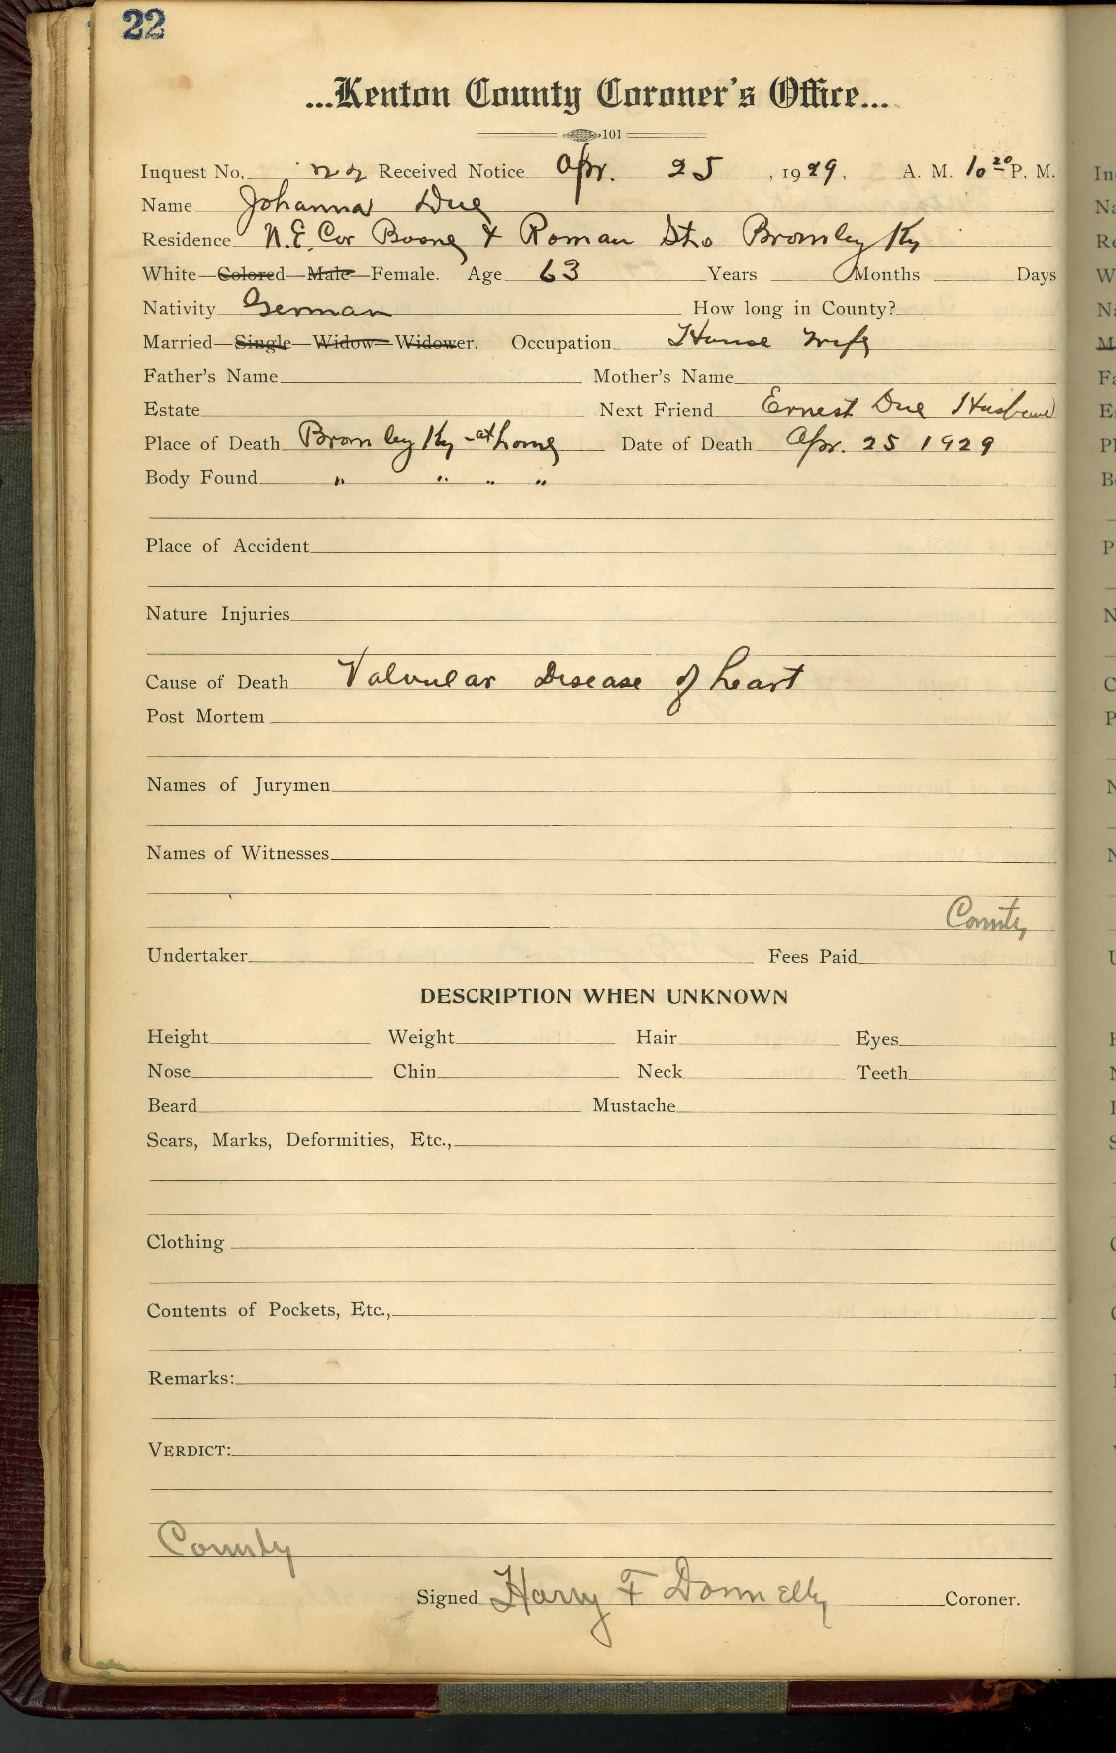 22
...Kenton County Coroner's Office...
101
Inquest No. 22 Received Notice Apr. 25, 1929. A. M. 10 20 P. M.
Name Johanna Due
Residence N.E. Cor Boone & Roman Sts Bromley Ky
White—Colored—Male—Female. Age 63 Years Months Days
Nativity German How long in County?
Married—Single—Widow—Widower. Occupation House wife
Father's Name Mother's Name
Estate Next Friend Ernest Due Husband
Place of Death Bromley Ky - at home Date of Death Apr. 25 1929
Body Found " " " "
Place of Accident
Nature Injuries
Cause of Death Valvular Disease of heart
Post Mortem
Names of Jurymen
Names of Witnesses
County
Undertaker Fees Paid
DESCRIPTION WHEN UNKNOWN
Height Weight Hair Eyes
Nose Chin Neck Teeth
Beard Mustache
Scars, Marks, Deformities, Etc.,
Clothing
Contents of Pockets, Etc.,
Remarks:
VERDICT:
County
Signed Harry F Donnelly Coroner.